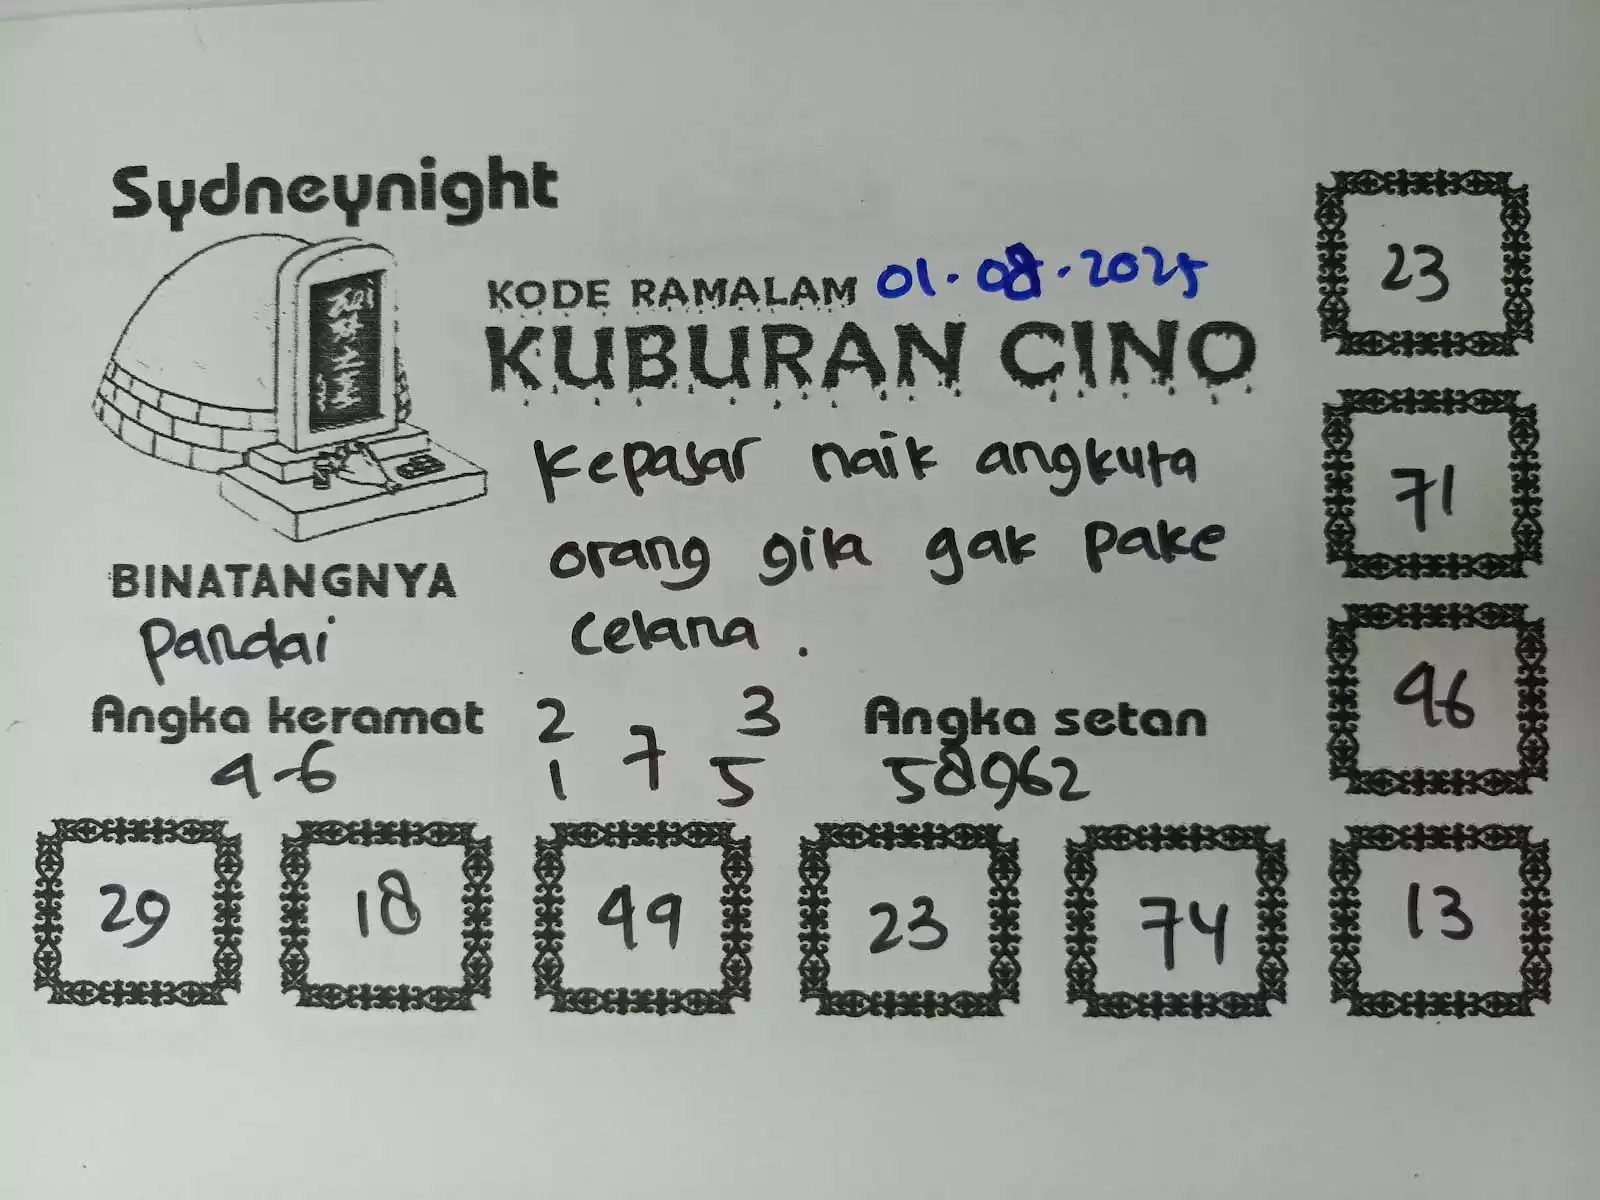 Sydneynight
KODE RAMALAM 01.08.2025
KUBURAN CINO
Kepasar naik angkuta
orang gila gak pake
celana.
BINATANGNYA
Pandai
Angka keramat
9-6
2 3
1 7 5
Angka setan
58962
23
71
96
29
18
49
23
74
13